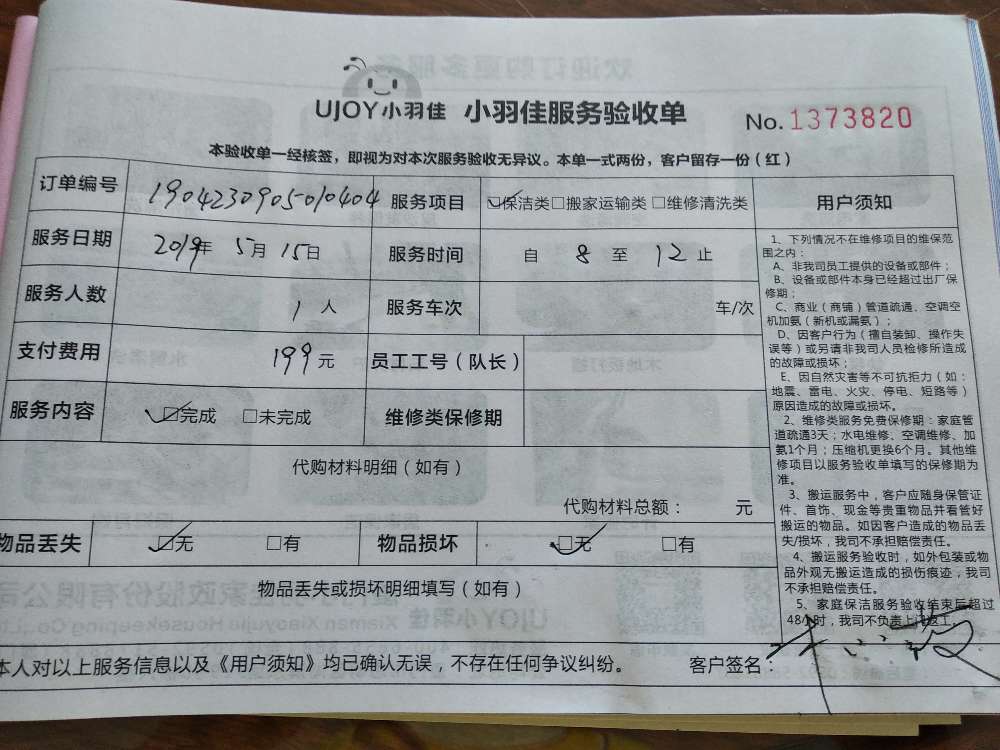 UJOY小羽佳 小羽佳服务验收单 No.1373820
本验收单一经核签，即视为对本次服务验收无异议。本单一式两份，客户留存一份（红）
订单编号 1904230905010404 服务项目 ☑保洁类□搬家运输类 □维修清洗类
服务日期 2019年 5月 15日 服务时间 自 8 至 12 止
服务人数 1 人 服务车次 车/次
支付费用 199元 员工工号（队长）
服务内容 ☑完成 □未完成 维修类保修期
代购材料明细（如有）
代购材料总额： 元
物品丢失 ☑无 □有 物品损坏 ☑无 □有
物品丢失或损坏明细填写（如有）
本人对以上服务信息以及《用户须知》均已确认无误，不存在任何争议纠纷。 客户签名：
用户须知
1、下列情况不在维修项目的维保范
围之内：
A、非我司员工提供的设备或部件；
B、设备或部件本身已经超过出厂保
修期；
C、商业（商铺）管道疏通、空调空
机加氨（新机或漏氨）；
D、因客户行为（擅自装卸、操作失
误等）或另请非我司人员检修所造成
的故障或损坏；
E、因自然灾害等不可抗拒力（如：
地震、雷电、火灾、停电、短路等）
原因造成的故障或损坏。
2、维修类服务免费保修期：家庭管
道疏通3天；水电维修、空调维修、加
氨1个月；压缩机更换6个月。其他维
修项目以服务验收单填写的保修期为
准。
3、搬运服务中，客户应随身保管证
件、首饰、现金等贵重物品并看管好
搬运的物品。如因客户造成的物品丢
失/损坏，我司不承担赔偿责任。
4、搬运服务验收时，如外包装或物
品外观无搬运造成的损伤痕迹，我司
不承担赔偿责任。
5、家庭保洁服务验收结束后超过
48小时，我司不负责上门返工。